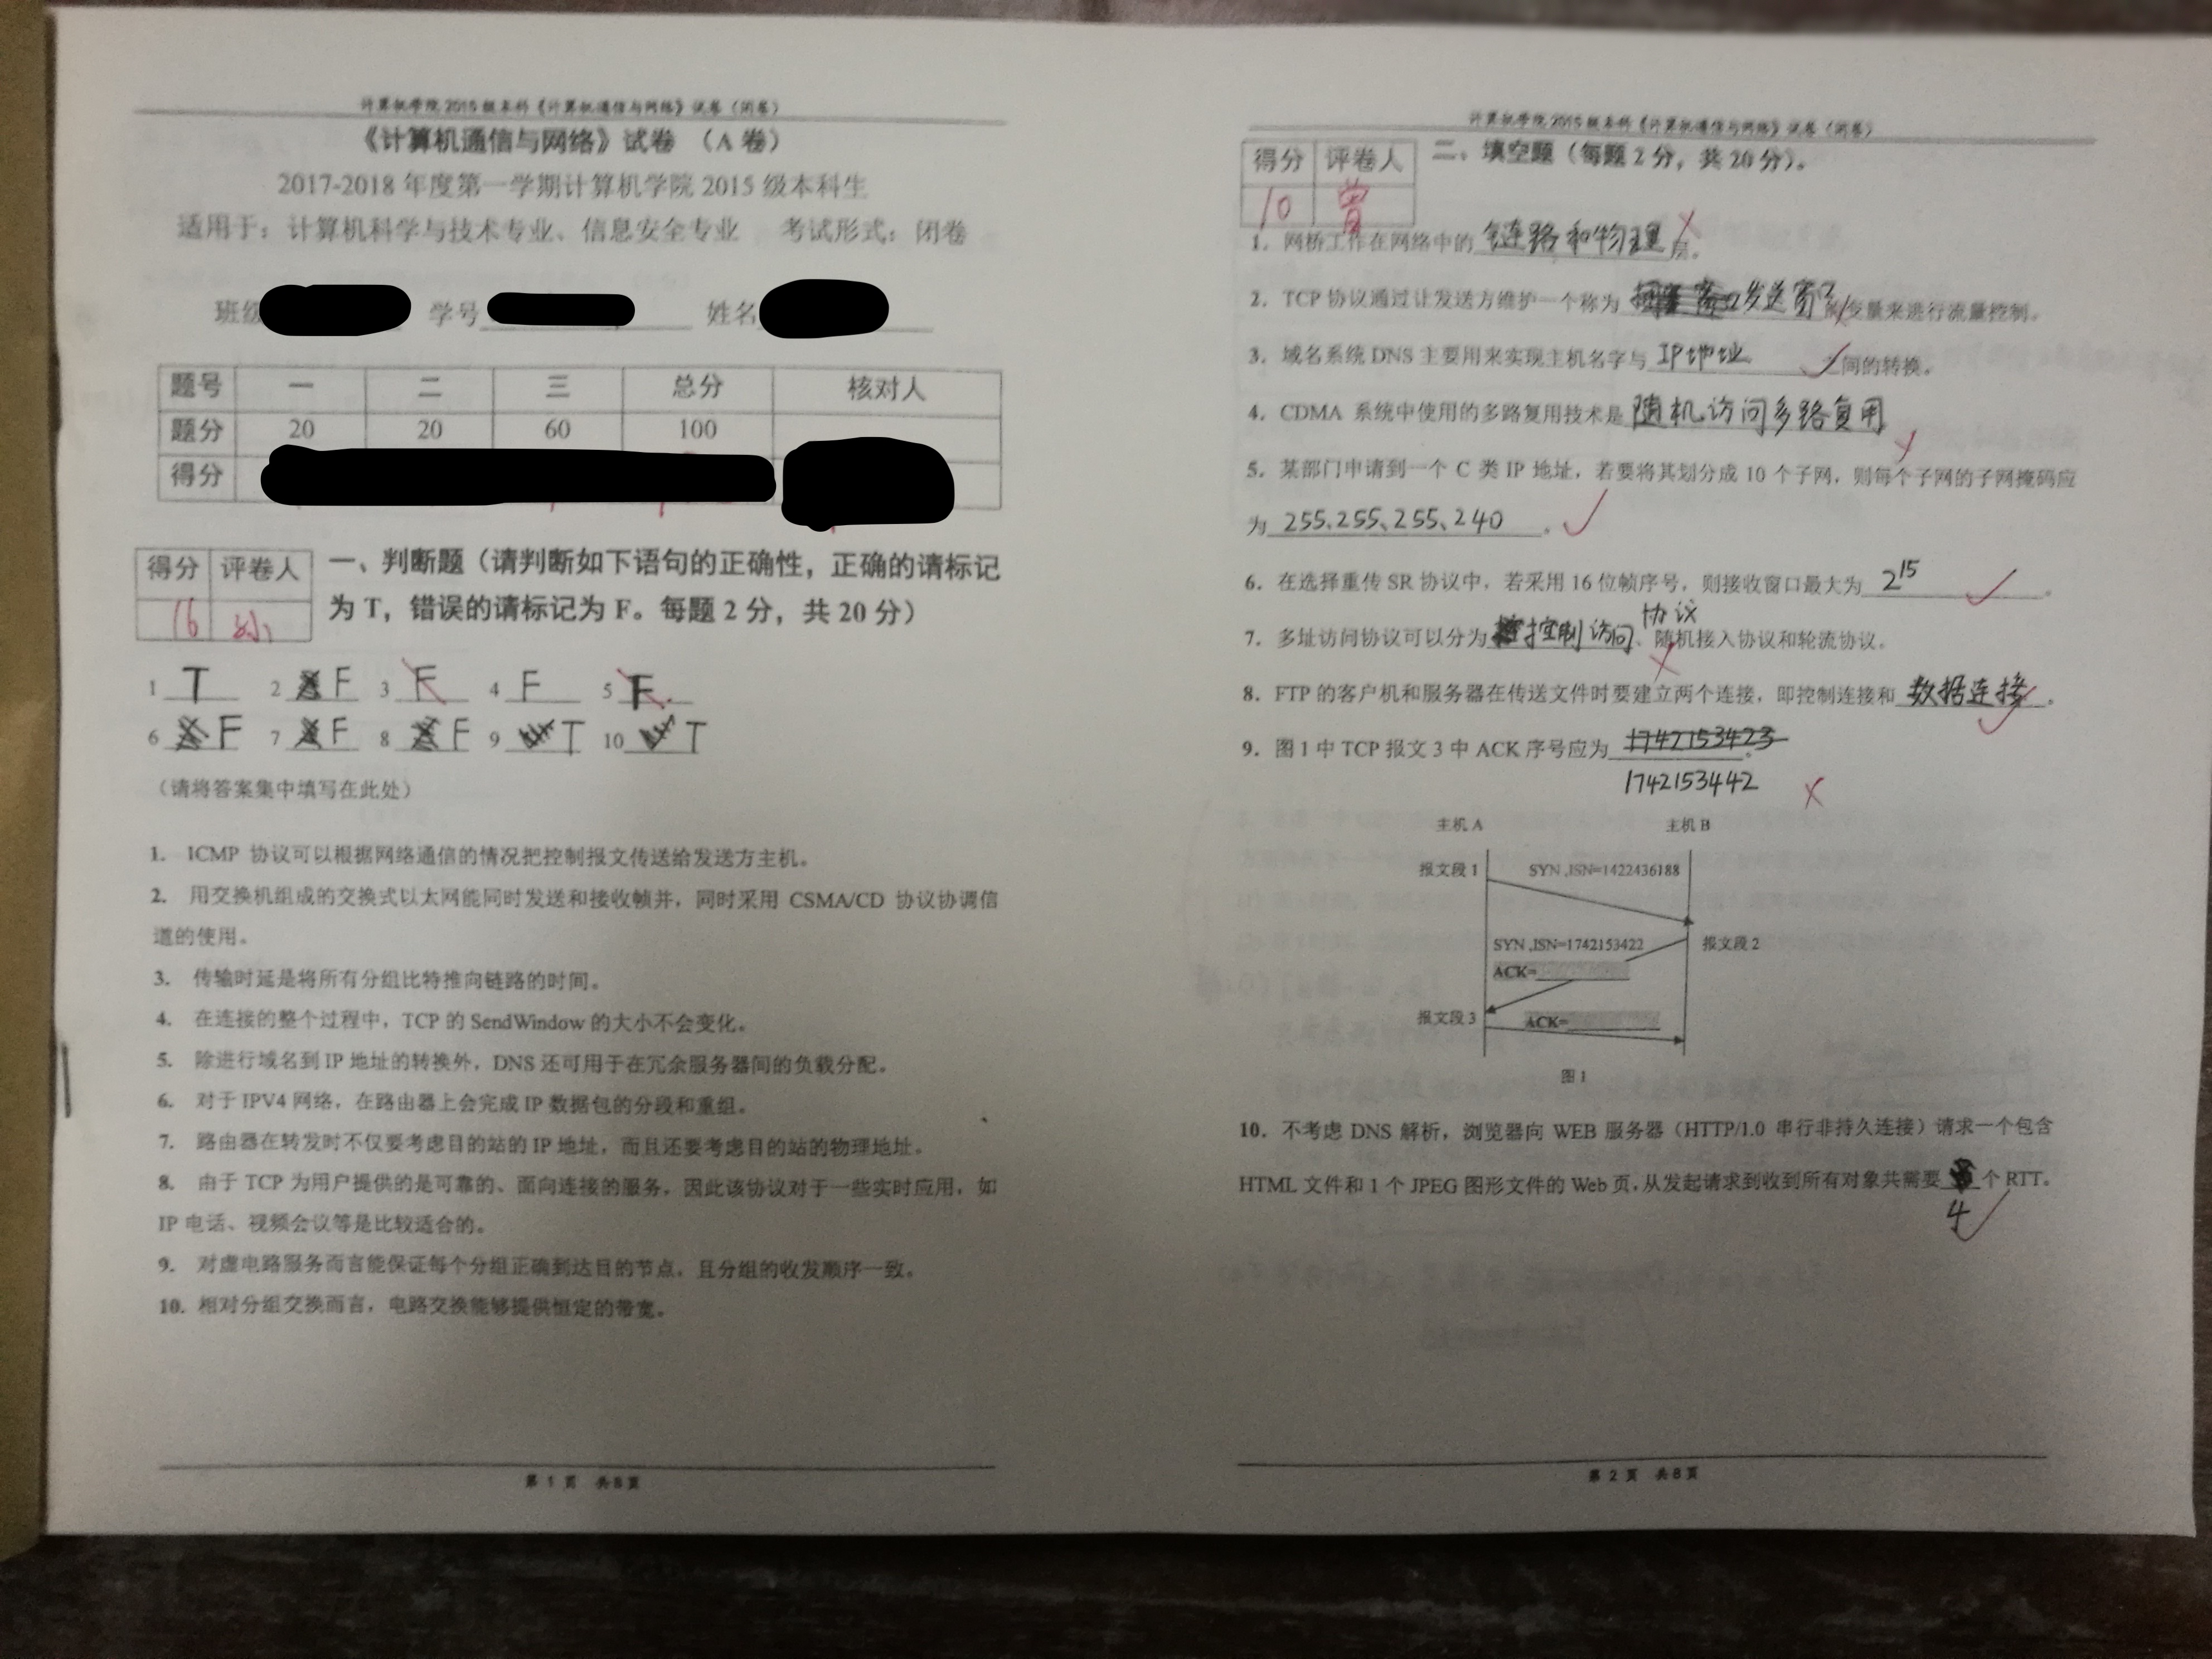 计算机学院2015级本科《计算机通信与网络》试卷（闭卷）
《计算机通信与网络》试卷 （A卷）
2017-2018年度第一学期计算机学院2015级本科生
适用于：计算机科学与技术专业、信息安全专业 考试形式：闭卷
班级 学号 姓名
题号 一 二 三 总分 核对人
题分 20 20 60 100
得分
得分 评卷人
16
一、判断题（请判断如下语句的正确性，正确的请标记
为T，错误的请标记为F。每题2分，共20分）
1 T 2 F 3 F 4 F 5 F
6 F 7 F 8 F 9 T 10 T
（请将答案集中填写在此处）
1. ICMP 协议可以根据网络通信的情况把控制报文传送给发送方主机。
2. 用交换机组成的交换式以太网能同时发送和接收帧并，同时采用 CSMA/CD 协议协调信
道的使用。
3. 传输时延是将所有分组比特推向链路的时间。
4. 在连接的整个过程中，TCP的SendWindow的大小不会变化。
5. 除进行域名到IP地址的转换外，DNS还可用于在冗余服务器间的负载分配。
6. 对于IPV4网络，在路由器上会完成IP数据包的分段和重组。
7. 路由器在转发时不仅要考虑目的站的IP地址，而且还要考虑目的站的物理地址。
8. 由于TCP为用户提供的是可靠的、面向连接的服务，因此该协议对于一些实时应用，如
IP电话、视频会议等是比较适合的。
9. 对虚电路服务而言能保证每个分组正确到达目的节点，且分组的收发顺序一致。
10. 相对分组交换而言，电路交换能够提供恒定的带宽。
第 1 页 共8页
计算机学院2015级本科《计算机通信与网络》试卷（闭卷）
得分 评卷人
10 曾
二、填空题（每题2分，共20分）。
1. 网桥工作在网络中的 链路和物理 层。
2. TCP协议通过让发送方维护一个称为 发送窗口 的变量来进行流量控制。
3. 域名系统DNS主要用来实现主机名字与 IP地址 之间的转换。
4. CDMA 系统中使用的多路复用技术是 随机访问多路复用
5. 某部门申请到一个C类IP地址，若要将其划分成10个子网，则每个子网的子网掩码应
为 255、255、255、240 。
6. 在选择重传SR协议中，若采用16位帧序号，则接收窗口最大为 2^15 。
7. 多址访问协议可以分为 控制访问协议 、随机接入协议和轮流协议。
8. FTP的客户机和服务器在传送文件时要建立两个连接，即控制连接和 数据连接 。
9. 图1中TCP报文3中ACK序号应为 1742153423 。
1742153442
主机A 主机B
报文段1 SYN ,ISN=1422436188
SYN ,ISN=1742153422 报文段2
ACK=
报文段3 ACK=
图1
10. 不考虑DNS解析，浏览器向WEB服务器（HTTP/1.0串行非持久连接）请求一个包含
HTML文件和1个JPEG图形文件的Web页，从发起请求到收到所有对象共需要 个RTT。
4
第 2 页 共8页